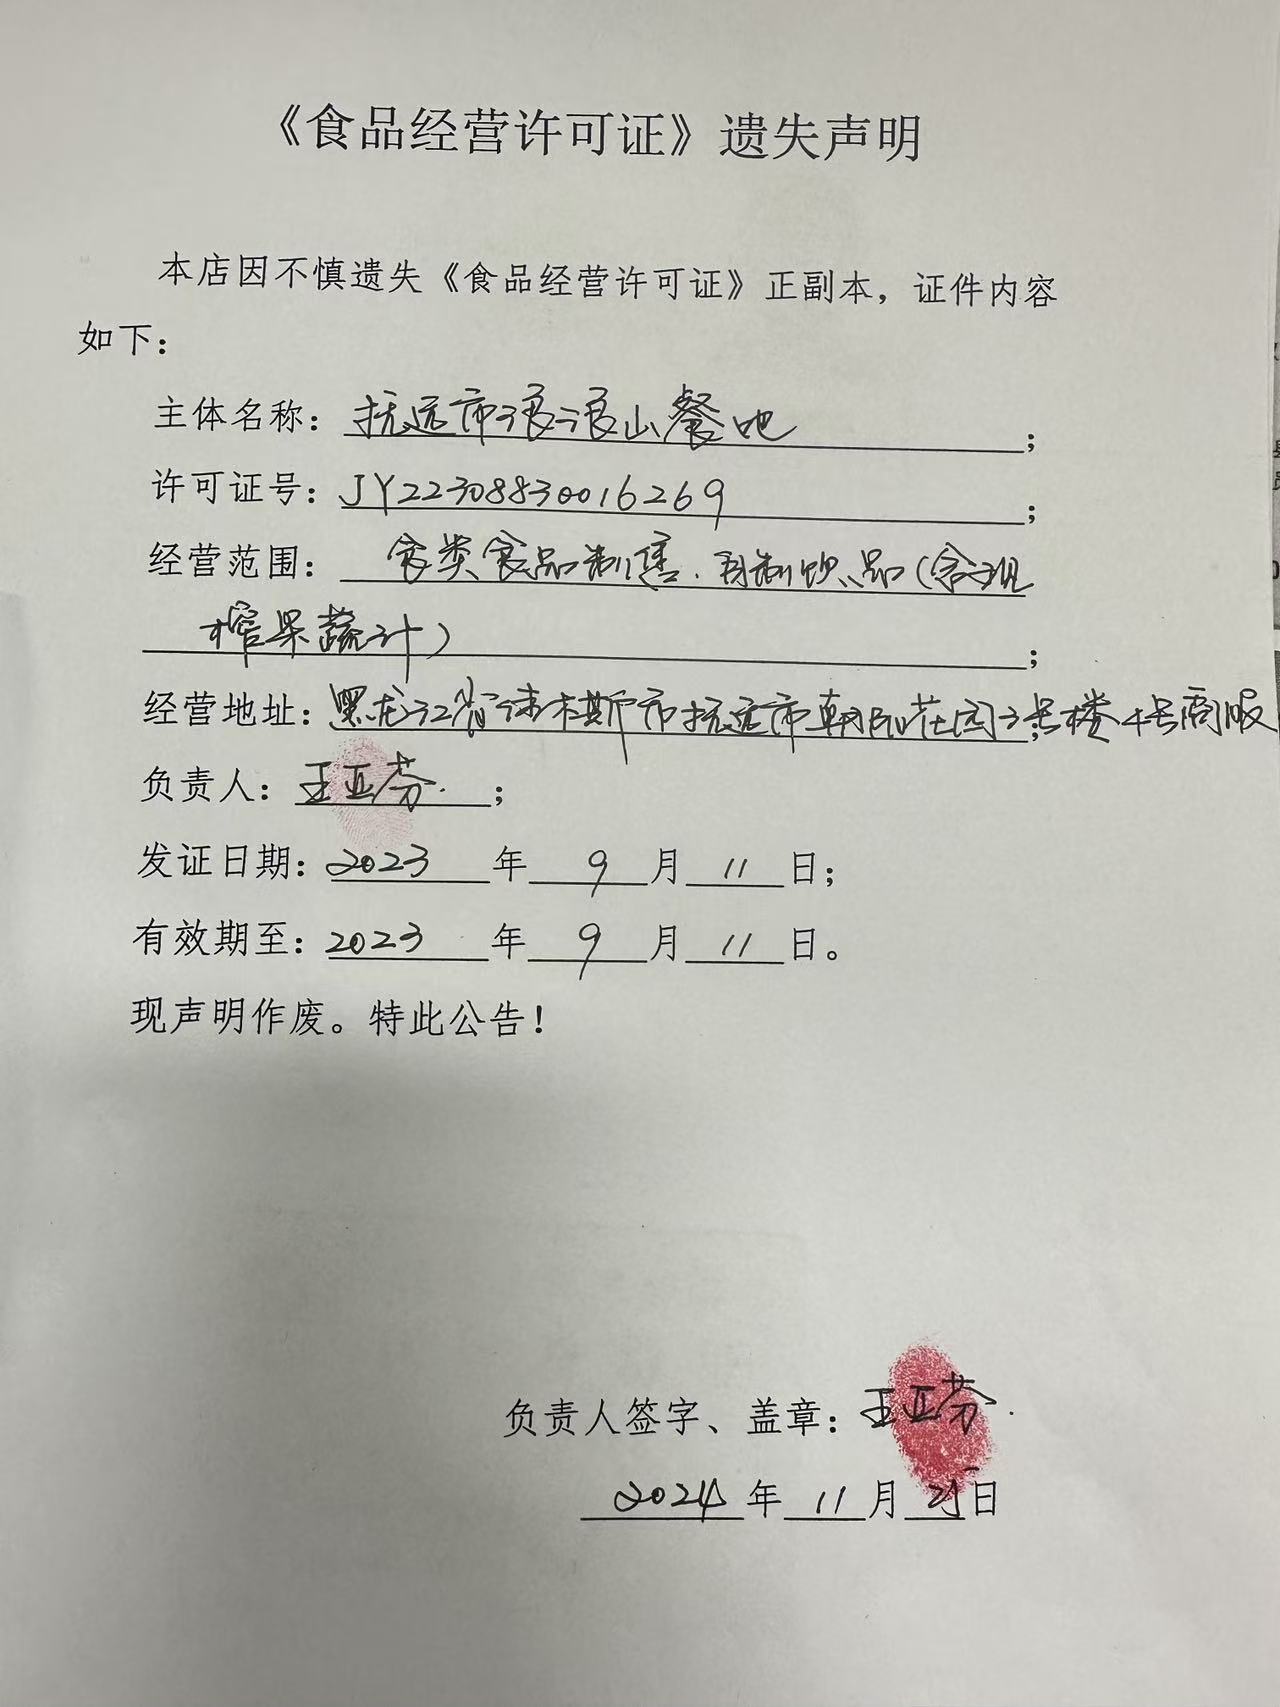 《食品经营许可证》遗失声明
本店因不慎遗失《食品经营许可证》正副本，证件内容
如下：
主体名称：抚远市浪浪山餐吧；
许可证号：JY22308830016269；
经营范围：食类食品制售.自制饮品(含现
榨果蔬汁)；
经营地址：黑龙江省佳木斯市抚远市朝阳花园3号楼4号商服；
负责人：王亚芬.；
发证日期：2023年9月11日；
有效期至：2023年9月11日。
现声明作废。特此公告！
负责人签字、盖章：王亚芬.
2024年11月25日